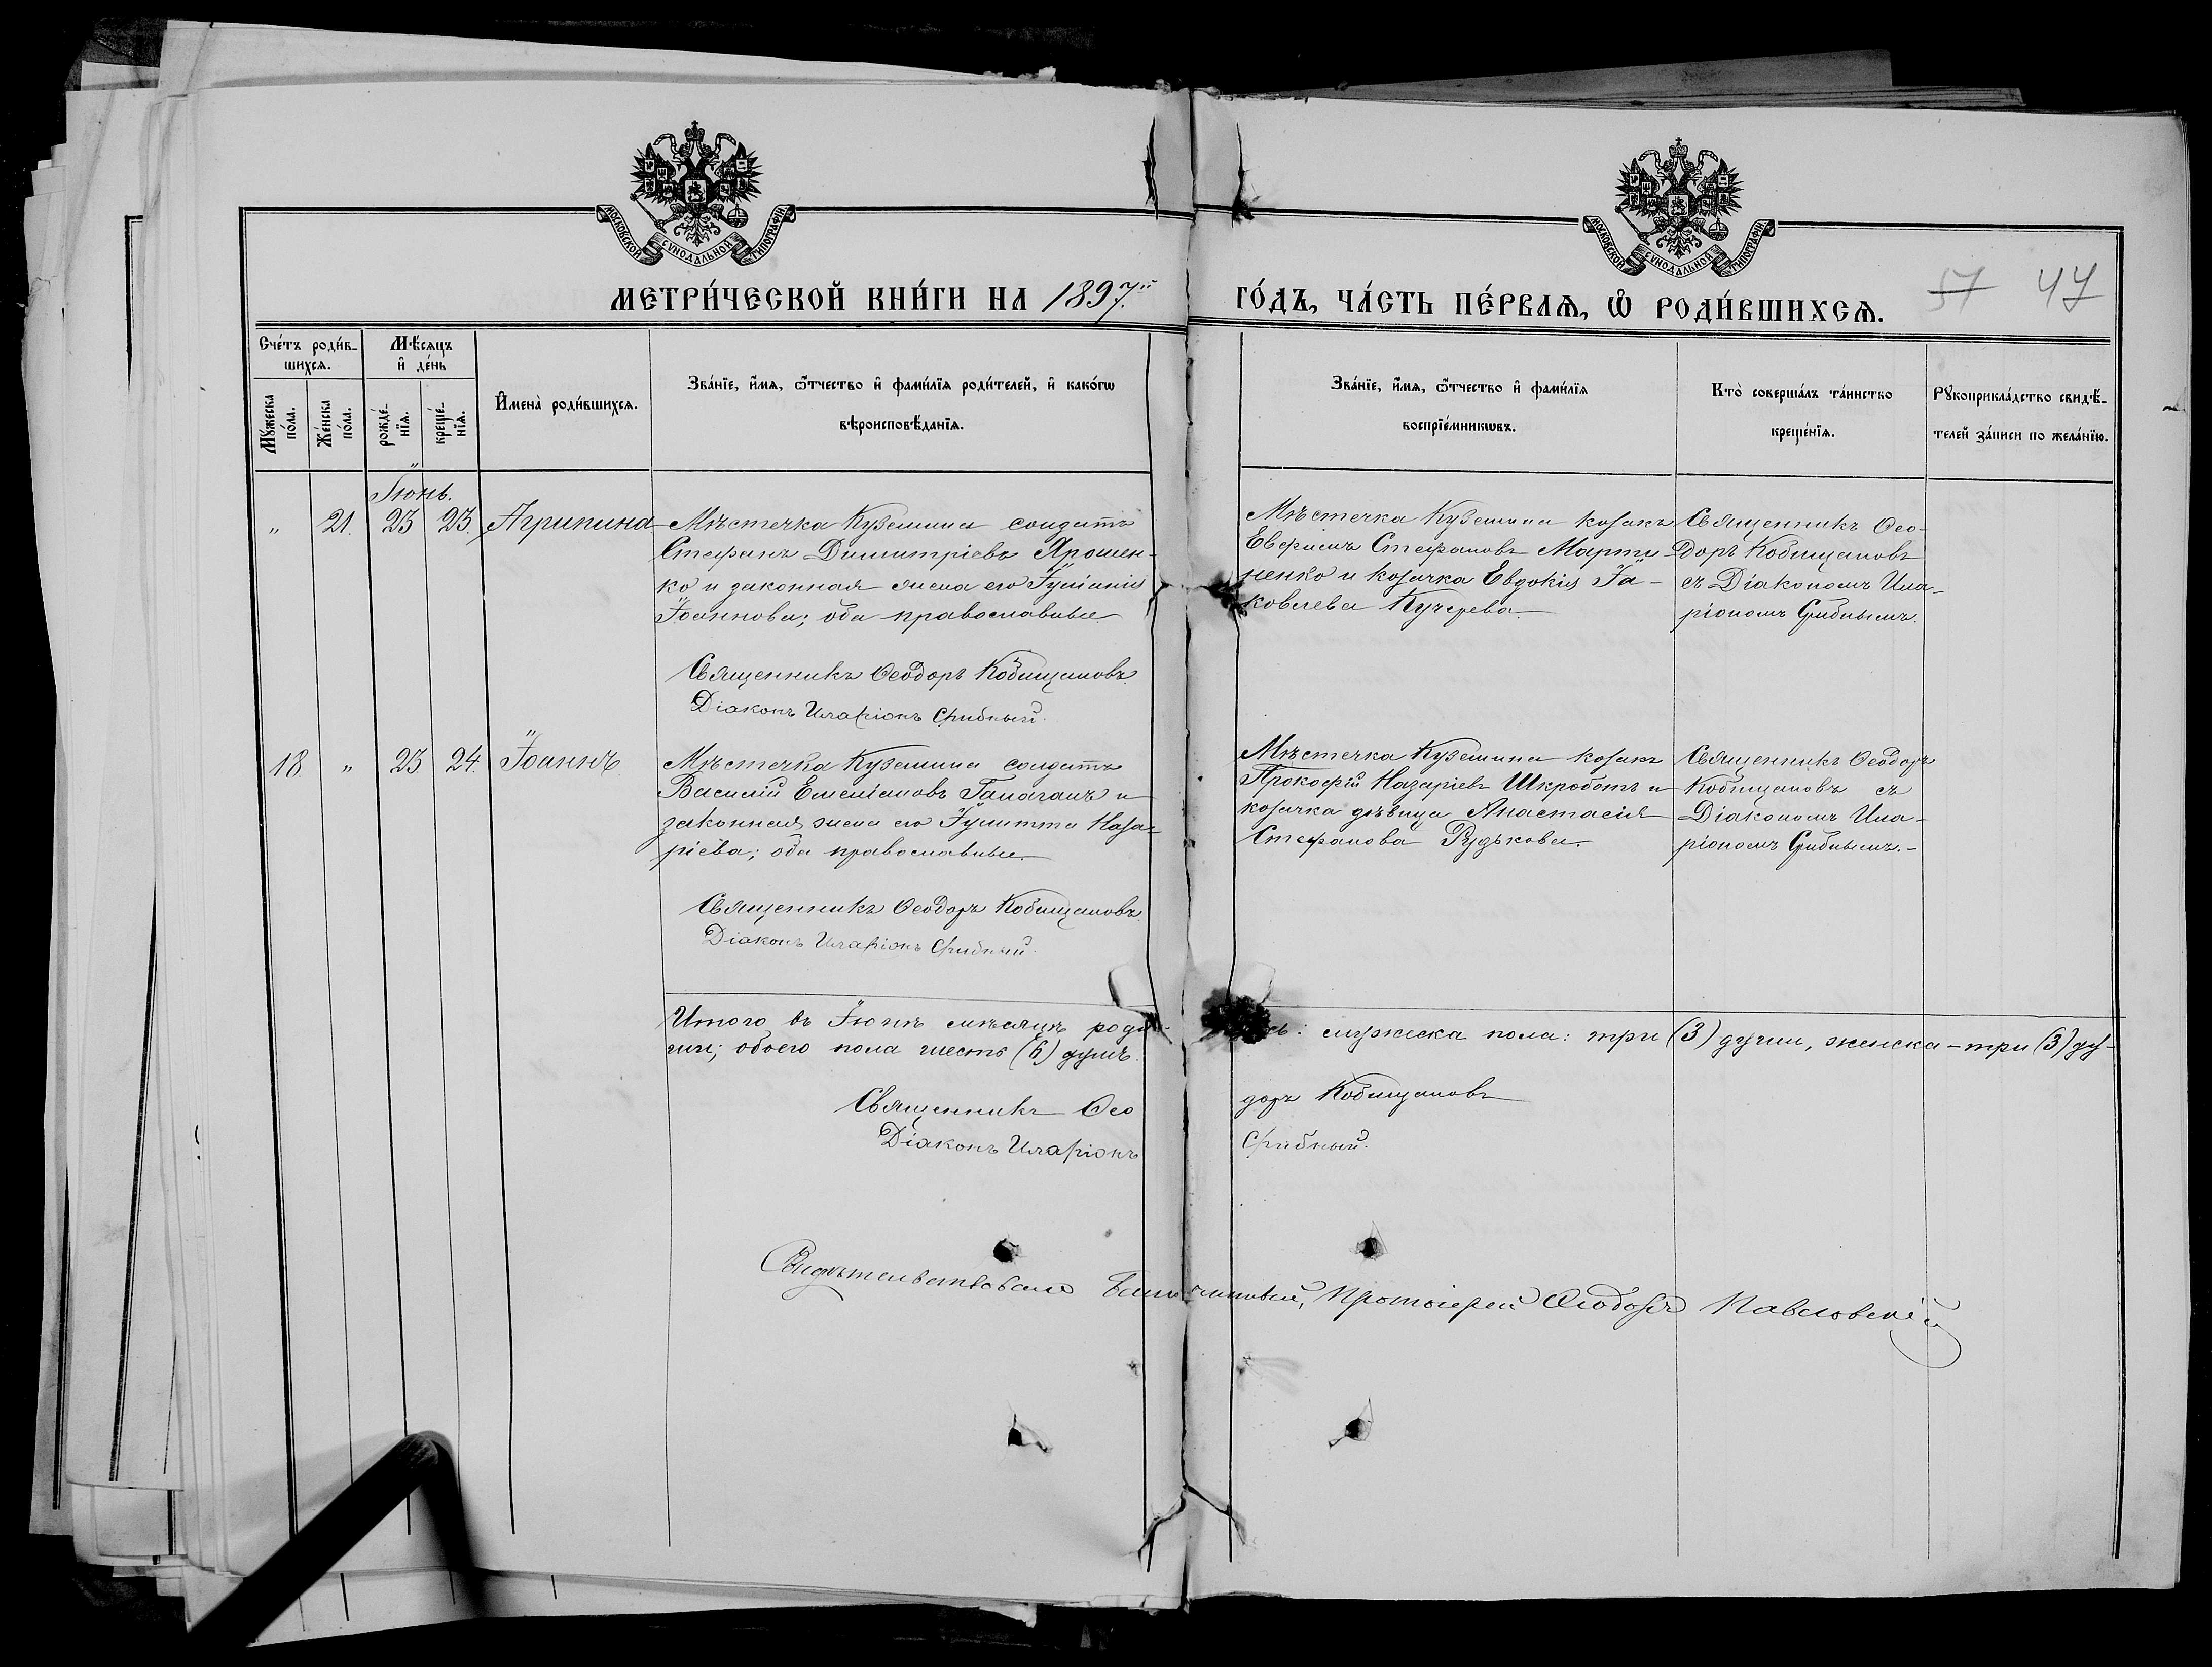 МОСКОВСКОЙ СѴНОДАЛЬНОЙ ТИПОГРАФІИ
МОСКОВСКОЙ СѴНОДАЛЬНОЙ ТИПОГРАФІИ
МЕТРИ́ЧЕСКОЙ КНИ́ГИ НА 1897й ГО́ДЪ, ЧА́СТЬ ПЕ́РВАѦ, Ѡ РОДИ́ВШИХСѦ.
57 47
Сче́тъ роди́в-
шихсѧ.
Мѣ́сяцъ
и҆ де́нь
Мꙋ́жеска
по́ла.
Же́нска
по́ла.
рожде́-
нїѧ.
креще́-
нїѧ.
И҆мена̀ роди́вшихсѧ.
Зва́нїе, и҆́мѧ, ѻ҆́тчество и҆ фами́лїѧ роди́телей, и҆ како́гѡ
вѣроисповѣ́данїѧ.
Зва́нїе, и҆́мѧ, ѻ҆́тчество и҆ фами́лїѧ
воспрїе́мникѡвъ.
Кто̀ соверша́лъ та́инство
креще́нїѧ.
Рꙋкоприкла́дство свидѣ́-
телей за́писи по жела́нїю.
Іюнь.
„ 21. 23 23. Агрипина
Мѣстечка Куземина солдатъ
Стефанъ Димитріевъ Ярошен-
ко и законная жена его Іуліанія
Іоаннова; оба православные
Священникъ Ѳеодоръ Кобищановъ
Діаконъ Иларіонъ Срибный.
Мѣстечка Куземина козакъ
Евфимъ Стефановъ Марти-
ненко и козачка Евдокія Іа-
ковлева Кучерева.
Священникъ Ѳео-
доръ Кобищановъ
съ Діакономъ Ила-
ріономъ Срибнымъ.
18 „ 23 24. Іоаннъ
Мѣстечка Куземина солдатъ
Василій Емеліановъ Галаганъ и
законная жена его Іулитта Наза-
ріева; оба православные.
Священникъ Ѳеодоръ Кобищановъ
Діаконъ Иларіонъ Срибный.
Мѣстечка Куземина козакъ
Прокофій Назаріевъ Шкроботъ и
козачка дѣвица Анастасія
Стефанова Рудькова.
Священникъ Ѳеодоръ
Кобищановъ съ
Діакономъ Ила-
ріономъ Срибнымъ.-
Итого въ Іюнѣ мѣсяцѣ роди-сь: мужеска пола: три (3) души, женска - три (3) ду-
ши; обоего пола шесть (6) душъ.
Священникъ Ѳеодоръ Кобищановъ
Діаконъ Иларіонъ Срибный.
Свидѣтельствовалъ Благочинный, Протоіерей Ѳеодоръ Павловскій